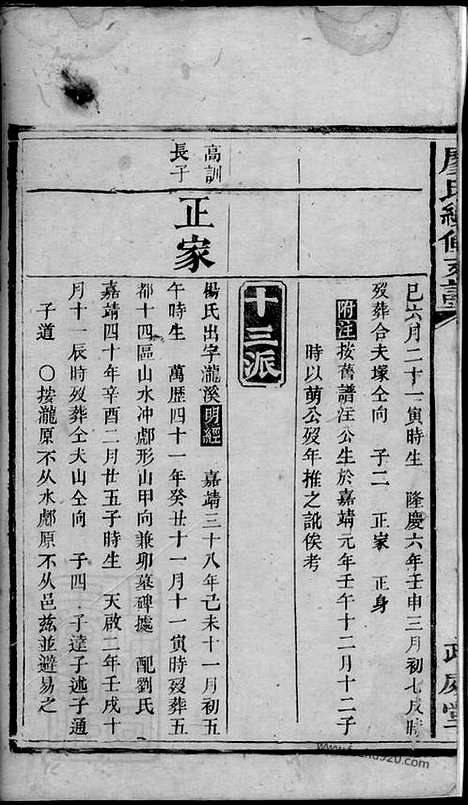 廖氏續修支譜
巳六月二十一寅時生　隆慶六年壬申三月初七戌時
歿葬合夫塚仝向　子二　正家　正身
附注 按舊譜注公生於嘉靖元年壬午十二月十二子
時以萌公歿年推之訛俟考
十三派
高訓
長子
正家
楊氏出字瀧溪明經　嘉靖三十八年己未十一月初五
午時生　萬歷四十一年癸丑十一月十一寅時歿葬五
都十四區山水冲形山甲向兼卯墓碑據　配劉氏
嘉靖四十年辛酉二月廿五子時生　天啟二年壬戌十
月十一辰時歿葬仝夫山仝向　子四　子達子述子通
子道　○按瀧原不从水原不从邑茲並避易之